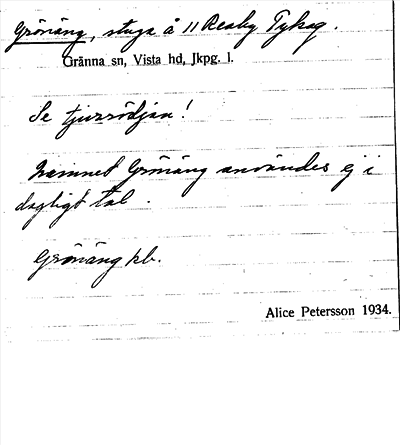 Grönäng, stuga å 11 Reaby Tykeg.
Gränna sn, Vista hd, Jkpg. l.
Se tjusrödjan!
Namnet Grönäng användes ej i
dagligt tal.
Grönäng kb.
Alice Petersson 1934.